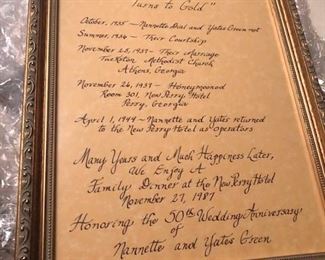 Turns to Gold"
October, 1935 - Nannette Dial and Yates Green met
Summer, 1936 - Their Courtship
November 25, 1937 - Their Marriage
Methodist Church
Athens, Georgia
November 26, 1937 - Honeymooned
Room 301, New Perry Hotel
Perry, Georgia
April 1, 1944 - Nannette and Yates returned
to the New Perry Hotel as Operators
Many Years and Much Happiness Later,
We Enjoy A
Family Dinner at the New Perry Hotel
November 27, 1987
Honoring the 50th Wedding Anniversary
of
Nannette and Yates Green